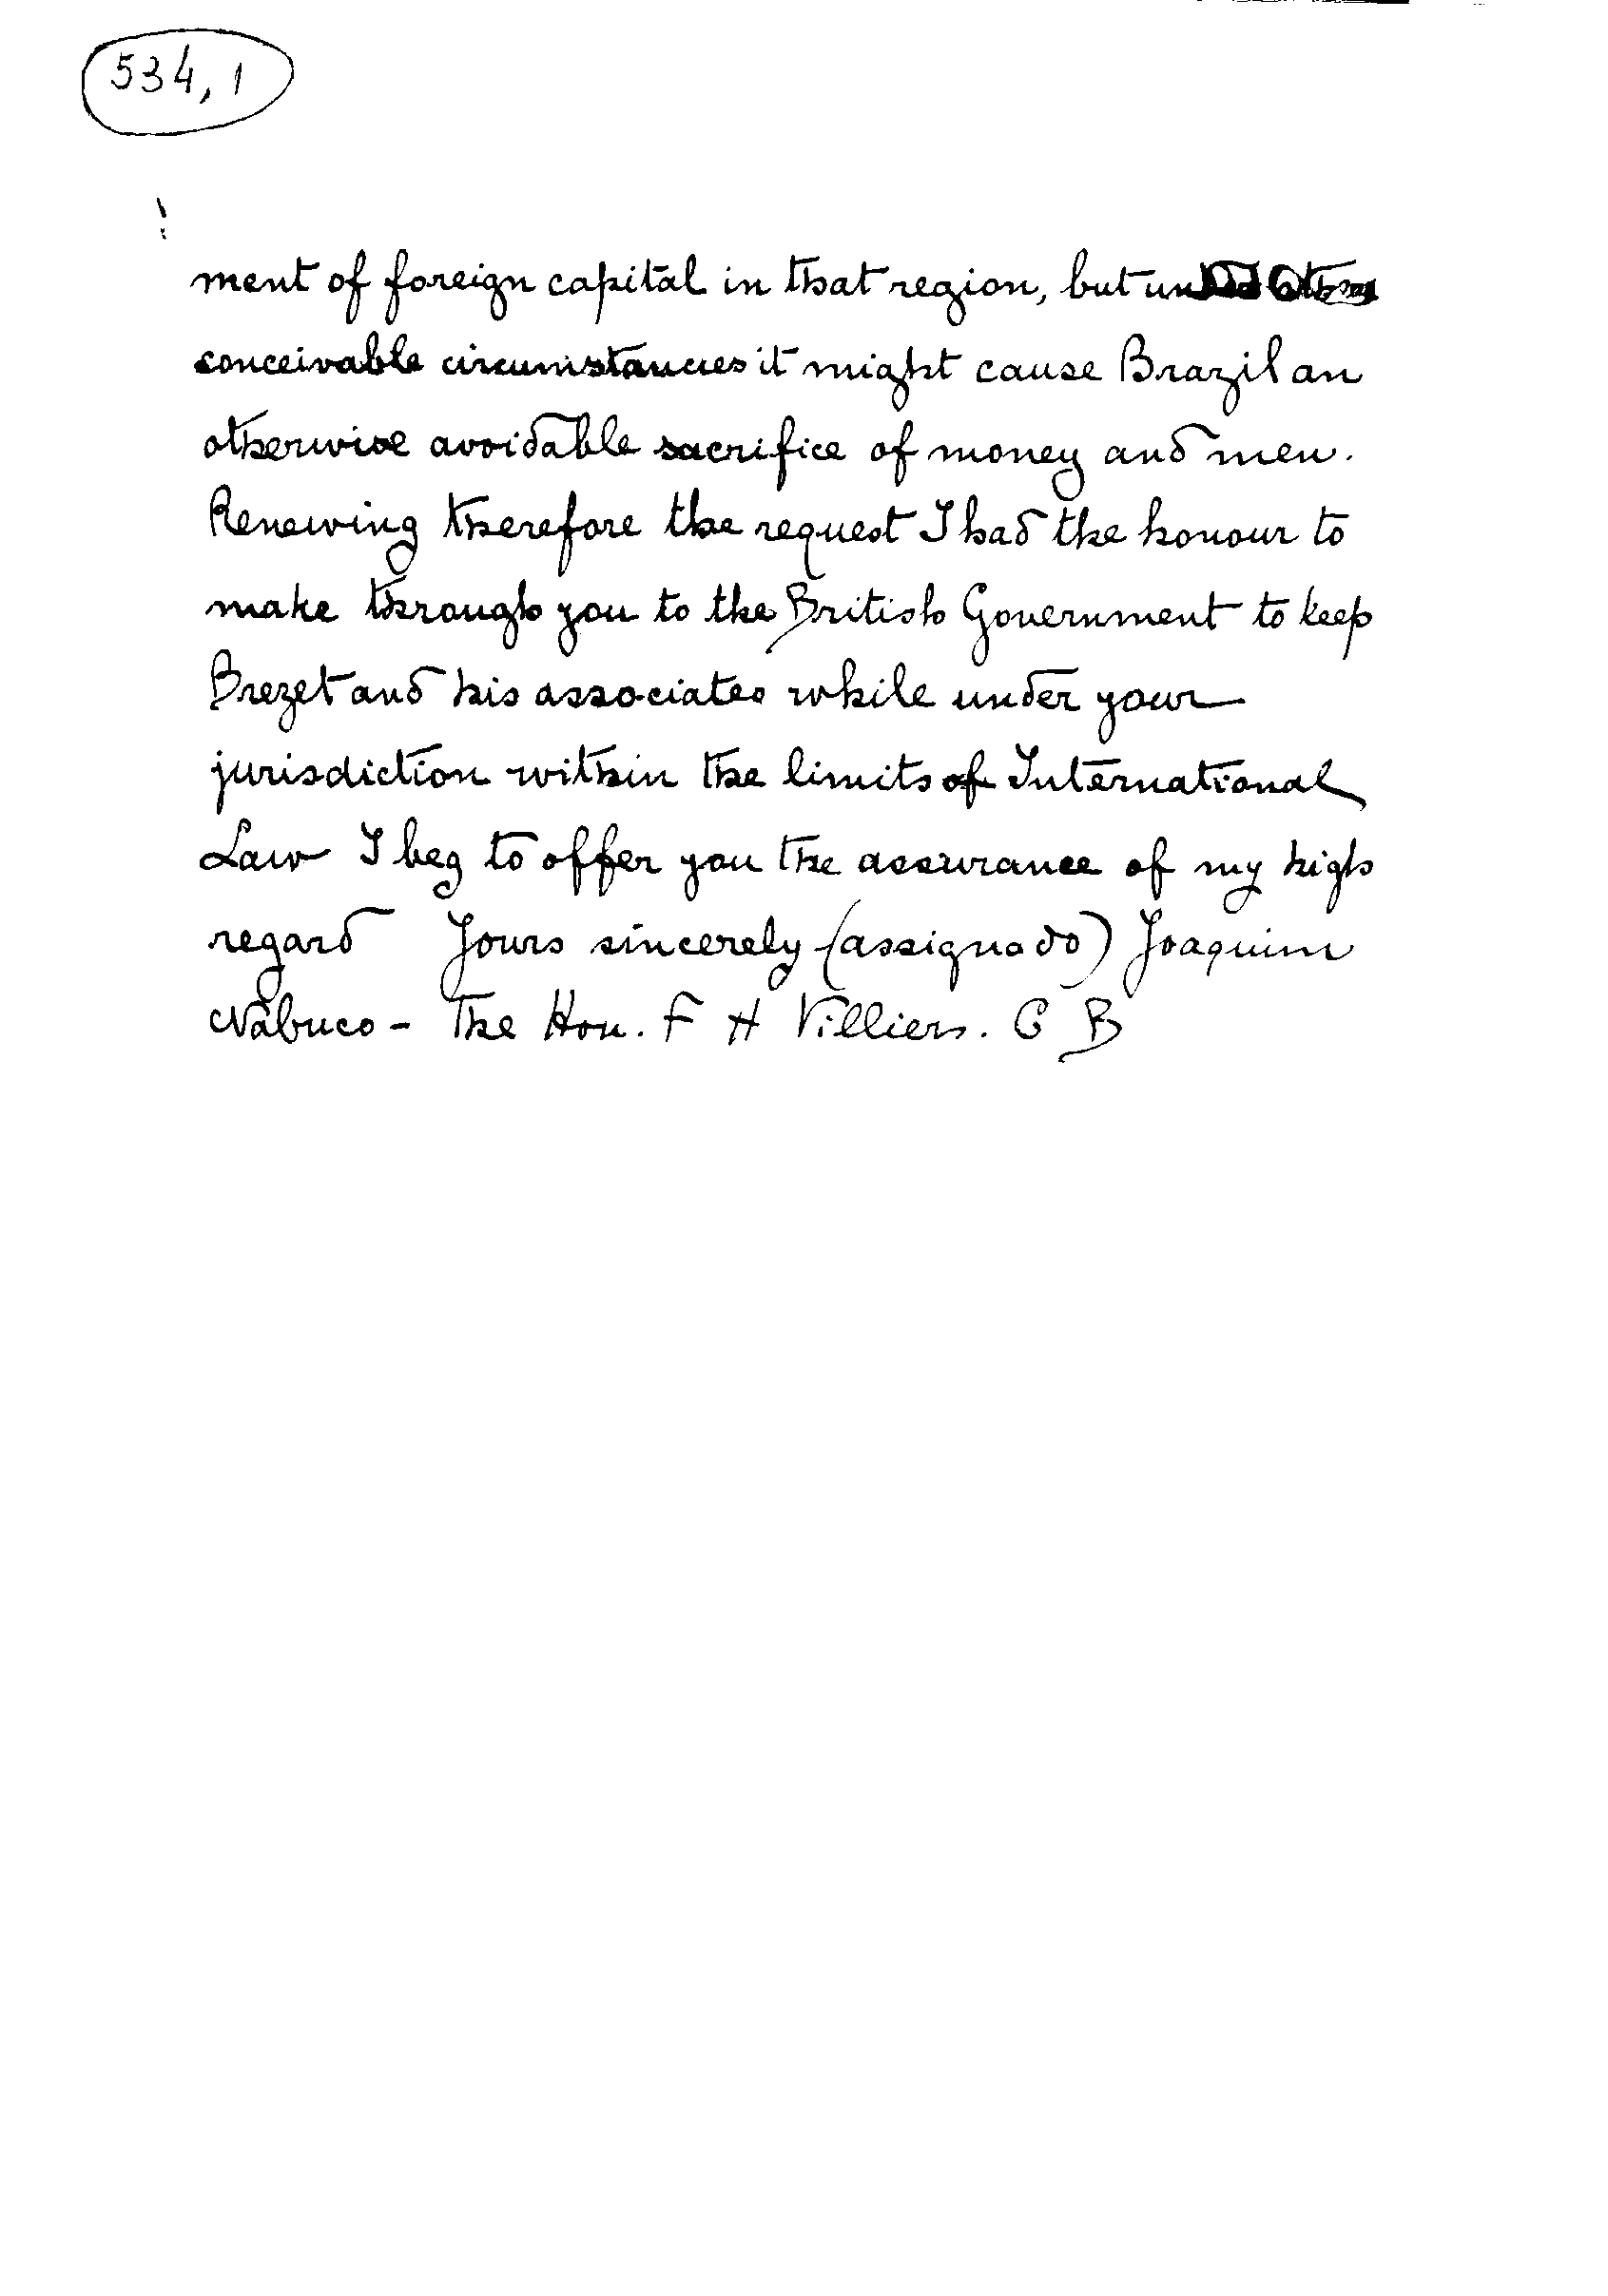 534, 1
ment of foreign capital in that region, but under other
conceivable circumstances it might cause Brazil an
otherwise avoidable sacrifice of money and men.
Renewing therefore the request I had the honour to
make through you to the British Government to keep
Brezet and his associates while under your
jurisdiction within the limits of International
Law I beg to offer you the assurance of my high
regard Yours sincerely (assignado) Joaquim
Nabuco - The Hon. F H Villiers. C B